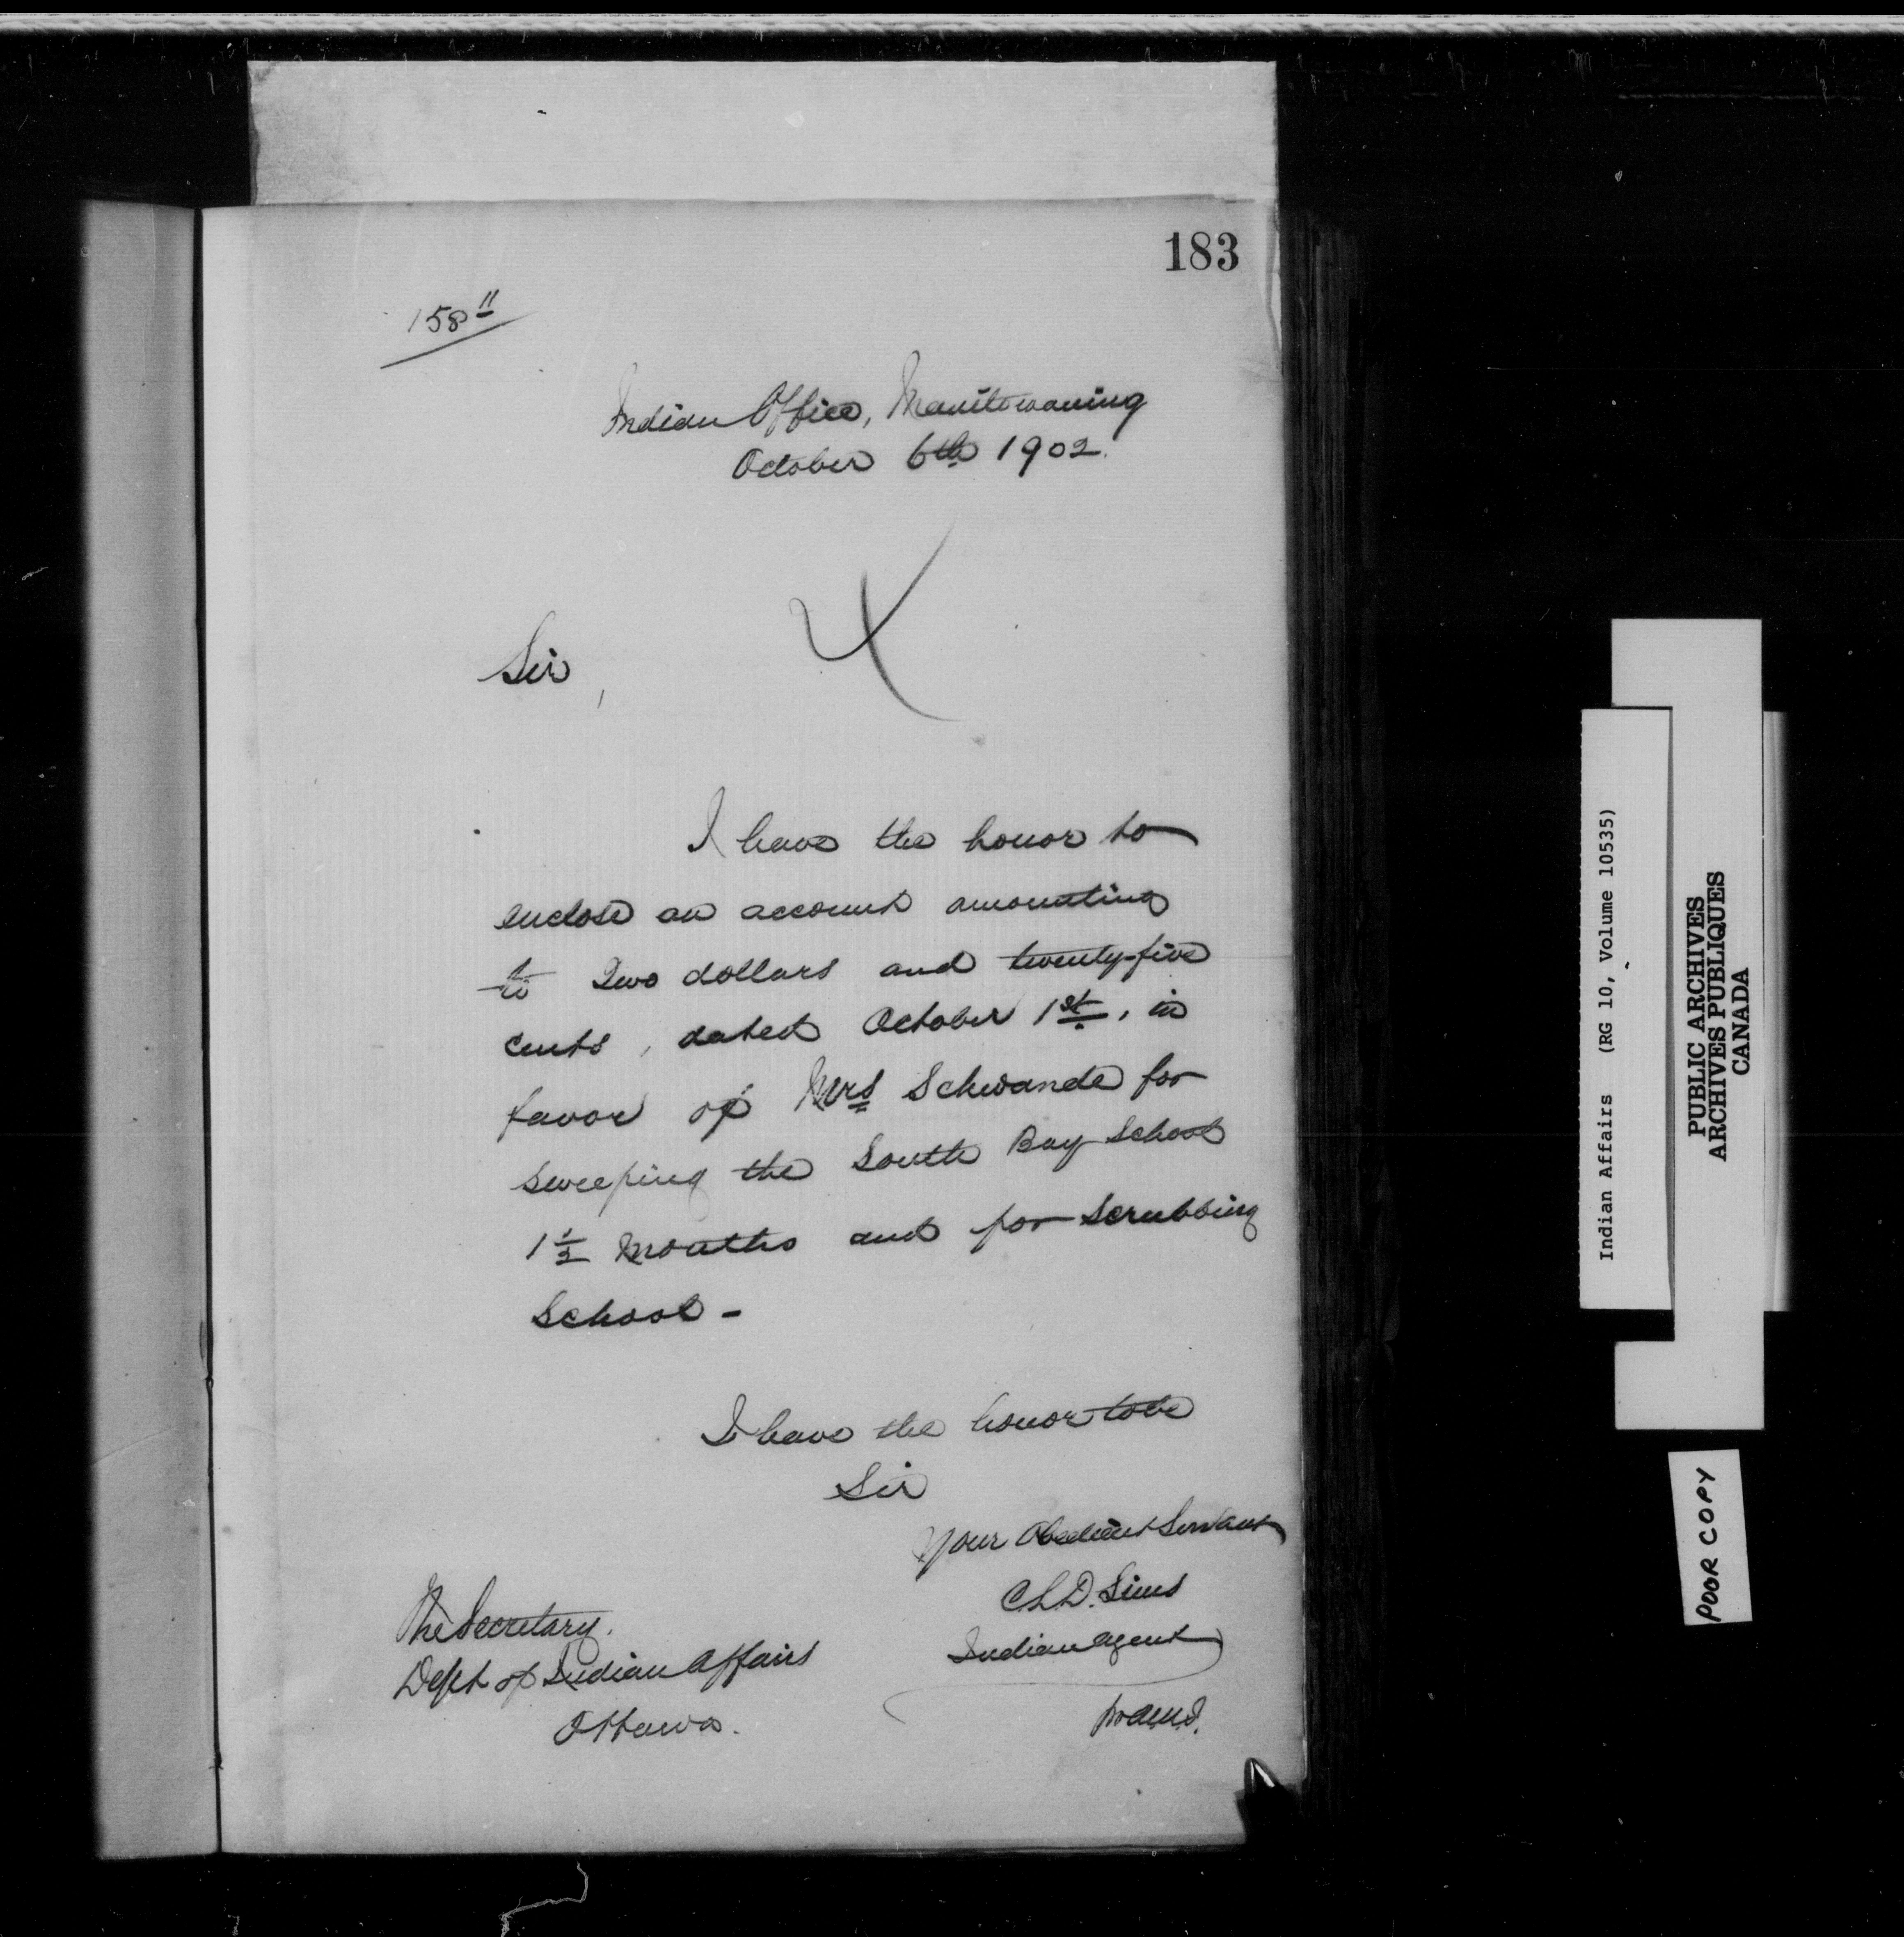 183
158 11
Indian Office, Manitowaning
October 6th 1902.
4
Sir,
I have the honor to
enclose an account amounting
to Two dollars and twenty-five
cents, dated October 1st, in
favor of Mrs Schwande for
sweeping the South Bay School
1 1/2 Months and for scrubbing
School -
I have the honor to be
Sir
Your Obedient Servant
C.L.D. Sims
Indian Agent
The Secretary.
Dept of Indian Affairs
Ottawa.
Indian Affairs (RG 10, Volume 10535)
PUBLIC ARCHIVES
ARCHIVES PUBLIQUES
CANADA
POOR COPY